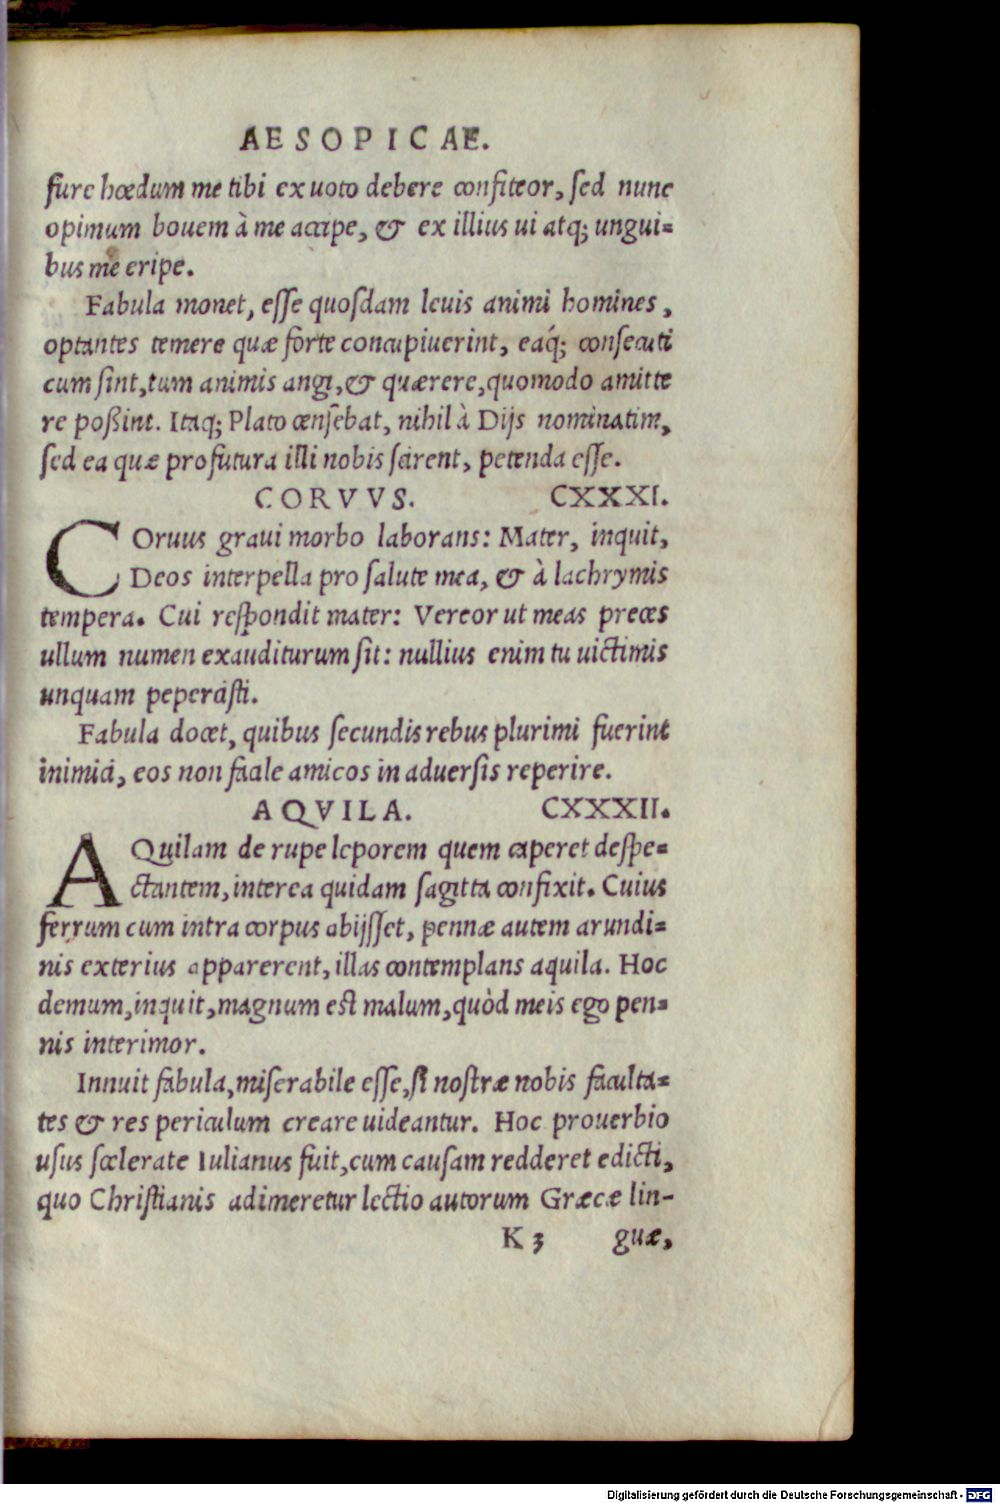 AESOPICAE.
fure hœdum me tibi ex uoto debere confiteor, sed nunc
opimum bouem à me accipe, & ex illius ui atq; ungui=
bus me eripe.
Fabula monet, esse quosdam leuis animi homines,
optantes temere quæ forte concupiuerint, eaq́; consecuti
cum sint, tum animis angi, & quærere, quomodo amitte
re poßint. Itaq; Plato censebat, nihil à Dijs nominatim,
sed ea quæ profutura illi nobis scirent, petenda esse.
CORVVS. CXXXI.
COruus graui morbo laborans: Mater, inquit,
Deos interpella pro salute mea, & à lachrymis
tempera. Cui respondit mater: Vereor ut meas preces
ullum numen exauditurum sit: nullius enim tu uictimis
unquam pepercisti.
Fabula docet, quibus secundis rebus plurimi fuerint
inimici, eos non facile amicos in aduersis reperire.
AQVILA. CXXXII.
AQuilam de rupe leporem quem caperet despe=
ctantem, interea quidam sagitta confixit. Cuius
ferrum cum intra corpus abijsset, pennæ autem arundi=
nis exterius apparerent, illas contemplans aquila. Hoc
demum, inquit, magnum est malum, quòd meis ego pen=
nis interimor.
Innuit fabula, miserabile esse, si nostræ nobis faculta=
tes & res periculum creare uideantur. Hoc prouerbio
usus scelerate Iulianus fuit, cum causam redderet edicti,
quo Christianis adimeretur lectio autorum Græcæ lin-
K 3 guæ,
Digitalisierung gefördert durch die Deutsche Forschungsgemeinschaft - DFG